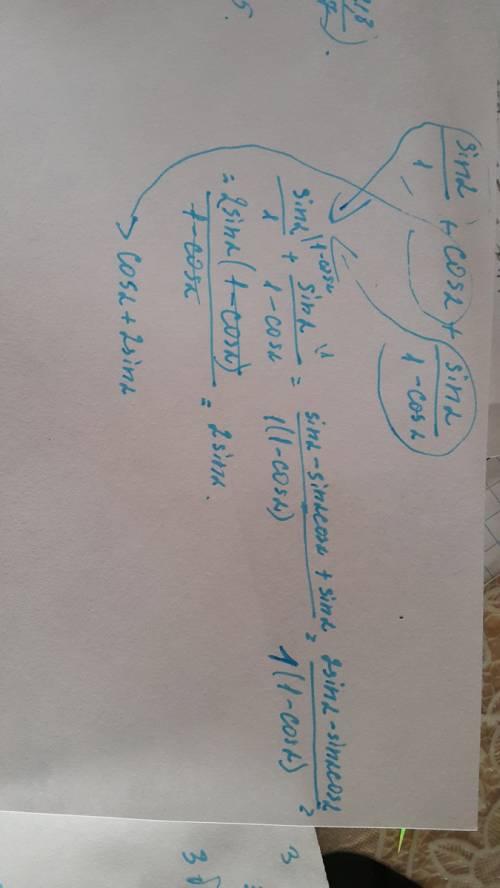 sinα/1 + cosα + sinα/(1-cosα)
sinα/1 |1-cosα + sinα/(1-cosα) = (sinα - sinαcosα + sinα)/(1(1-cosα)) = (2sinα - sinαcosα)/(1(1-cosα)) =
= 2sinα(1-cosα)/(1-cosα) = 2sinα.
cosα + 2sinα
3
3